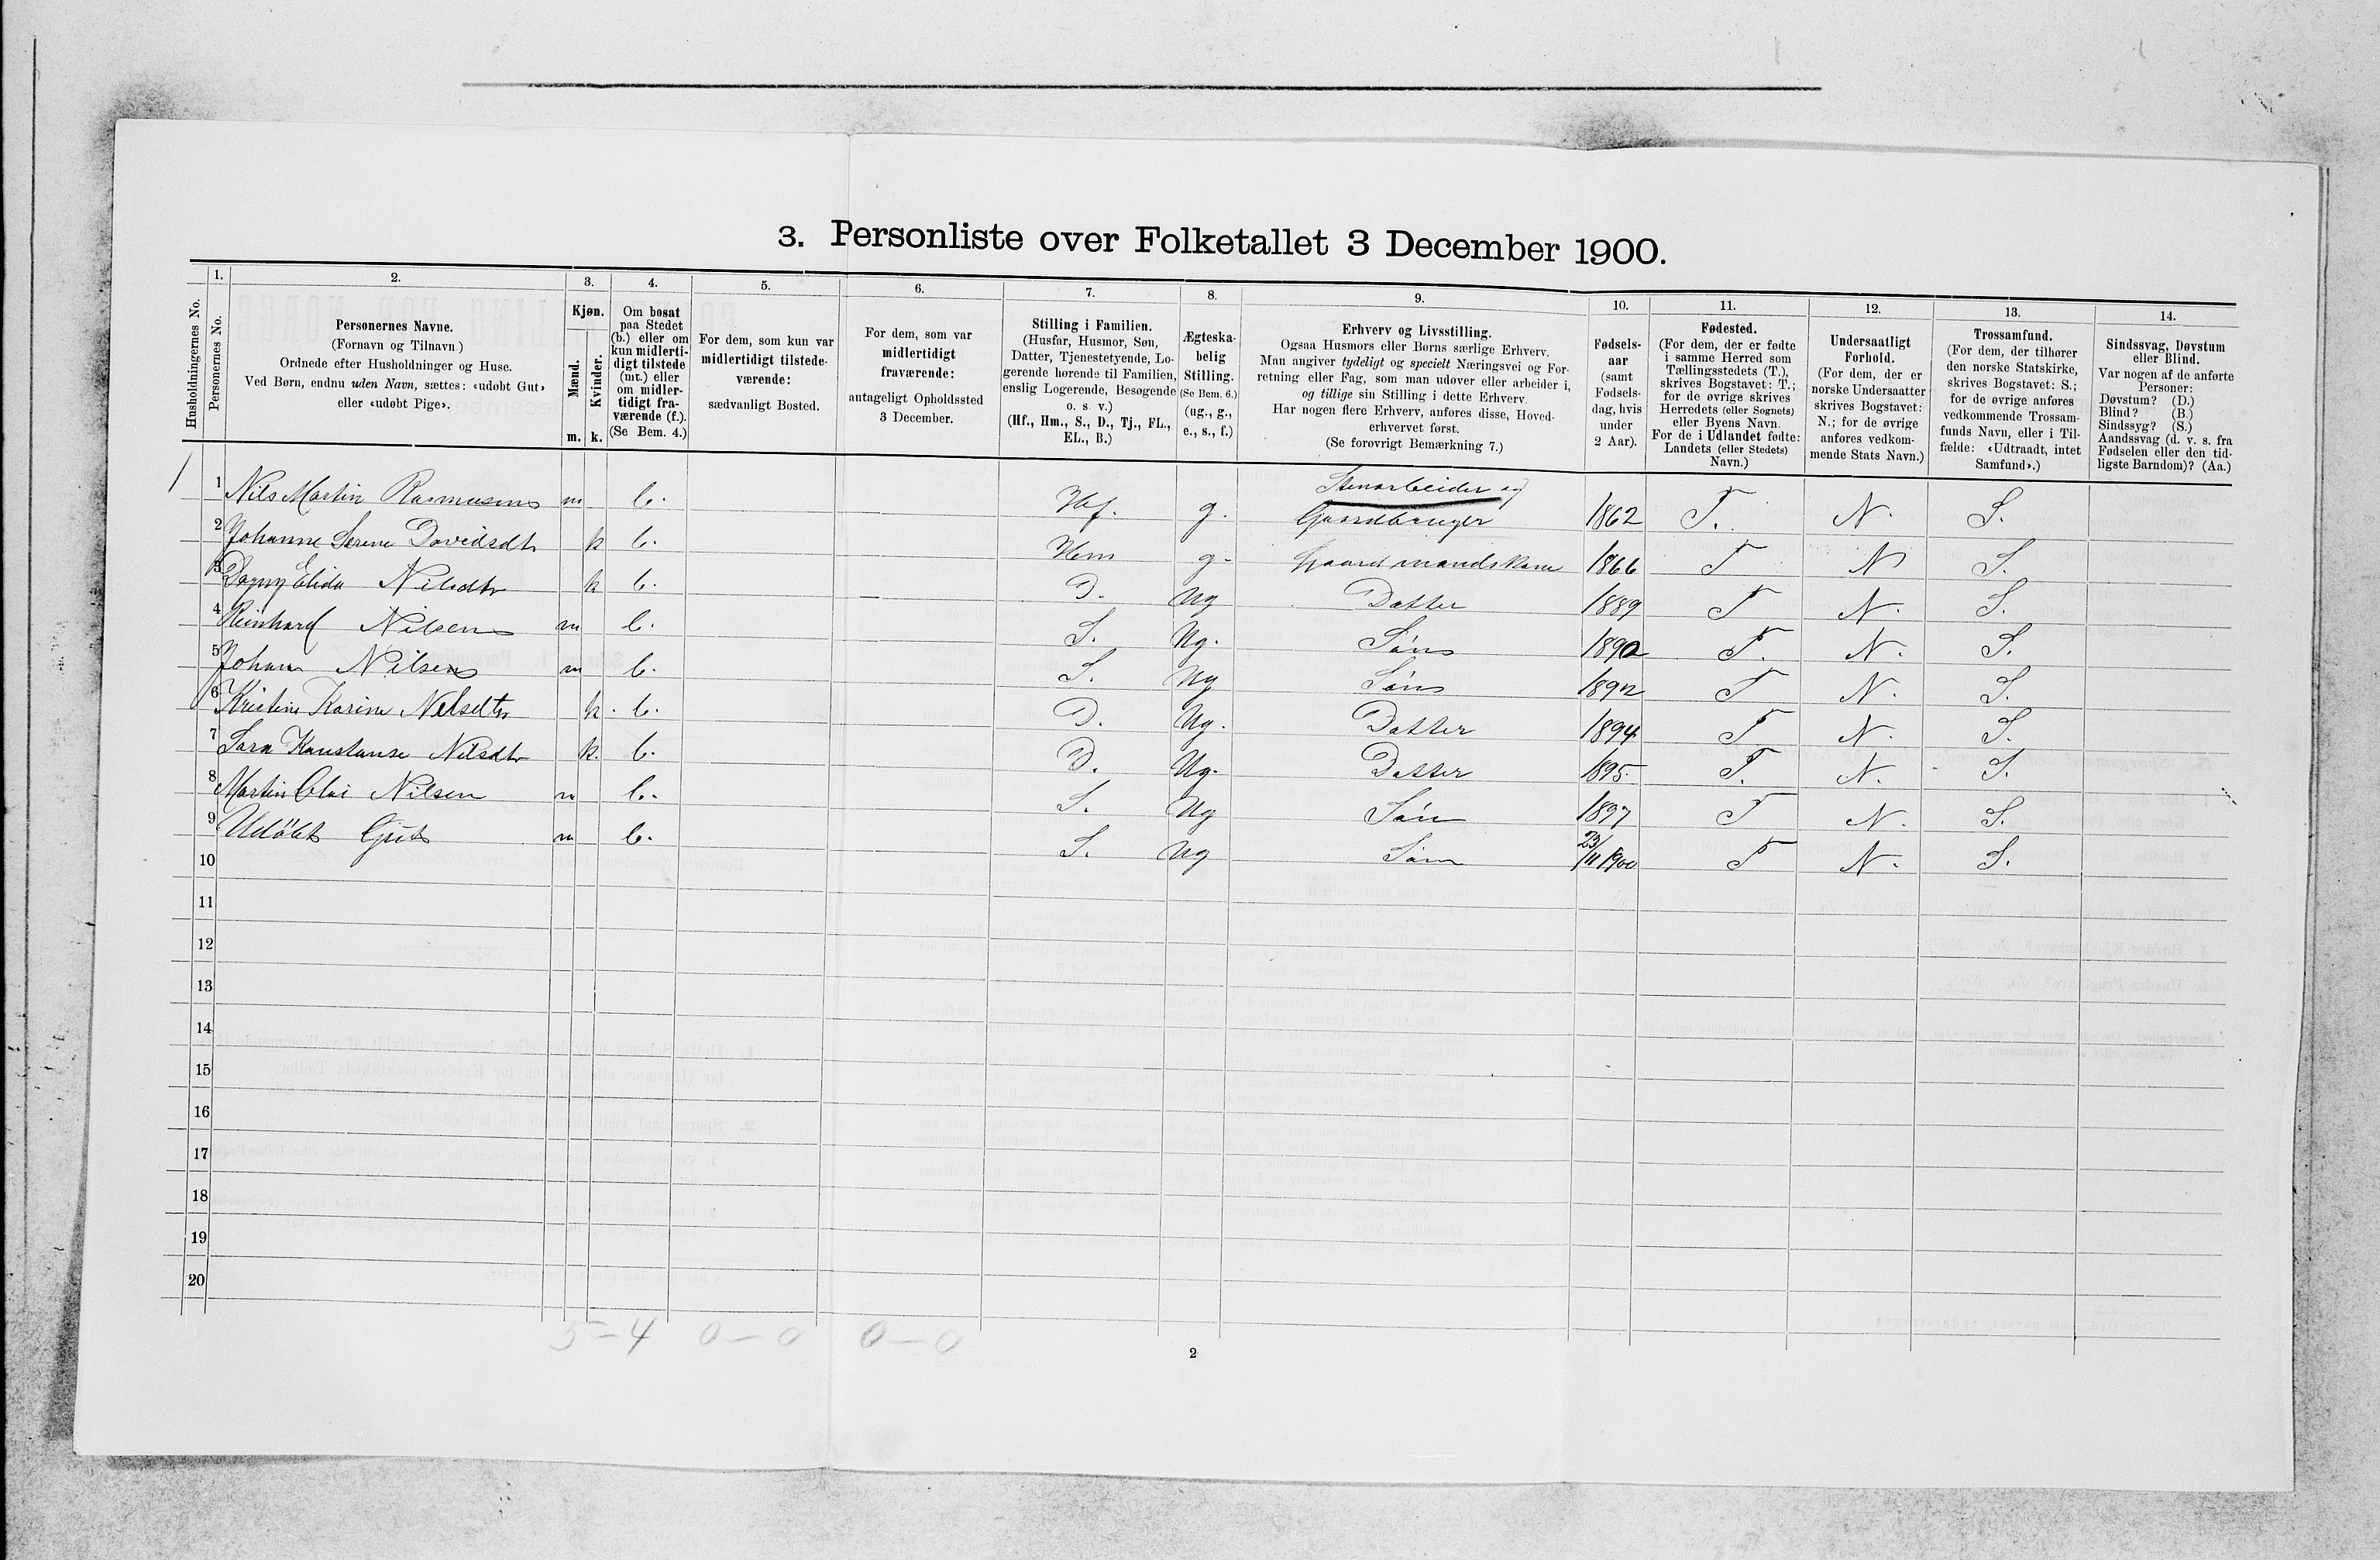 3. Personliste over Folketallet 3 December 1900.
1. 2. 3. 4. 5. 6. 7. 8. 9. 10. 11. 12. 13. 14.
Husholdningernes No.
Personernes No.
Personernes Navne.
(Fornavn og Tilnavn.)
Ordnede efter Husholdninger og Huse.
Ved Børn, endnu uden Navn, sættes: «udøbt Gut»
eller «udøbt Pige».
Kjøn.
Mænd.
Kvinder.
m. k.
Om bosat
paa Stedet
(b.) eller om
kun midlerti-
digt tilstede
(mt.) eller
om midler-
tidigt fra-
værende (f.).
(Se Bem. 4.)
For dem, som kun var
midlertidigt tilstede-
værende:
sædvanligt Bosted.
For dem, som var
midlertidigt
fraværende:
antageligt Opholdssted
3 December.
Stilling i Familien.
(Husfar, Husmor, Søn,
Datter, Tjenestetyende, Lo-
gerende hørende til Familien,
enslig Logerende, Besøgende
o. s. v.)
(Hf., Hm., S., D., Tj., FL.,
EL., B.)
Ægteska-
belig
Stilling.
(Se Bem. 6.)
(ug., g.,
e., s., f.)
Erhverv og Livsstilling.
Ogsaa Husmors eller Børns særlige Erhverv.
Man angiver tydeligt og specielt Næringsvei og For-
retning eller Fag, som man udøver eller arbeider i,
og tillige sin Stilling i dette Erhverv.
Har nogen flere Erhverv, anføres disse, Hoved-
erhvervet først.
(Se forøvrigt Bemærkning 7.)
Fødsels-
aar
(samt
Fødsels-
dag, hvis
under
2 Aar).
Fødested.
(For dem, der er fødte
i samme Herred som
Tællingsstedets (T.),
skrives Bogstavet: T.;
for de øvrige skrives
Herredets (eller Sognets)
eller Byens Navn.
For de i Udlandet fødte:
Landets (eller Stedets)
Navn.)
Undersaatligt
Forhold.
(For dem, der er
norske Undersaatter
skrives Bogstavet:
N.; for de øvrige
anføres vedkom-
mende Stats Navn.)
Trossamfund.
(For dem, der tilhører
den norske Statskirke,
skrives Bogstavet: S.;
for de øvrige anføres
vedkommende Trossam-
funds Navn, eller i Til-
fælde: «Udtraadt, intet
Samfund».)
Sindssvag, Døvstum
eller Blind.
Var nogen af de anførte
Personer:
Døvstum? (D.)
Blind? (B.)
Sindssyg? (S.)
Aandssvag (d. v. s. fra
Fødselen eller den tid-
ligste Barndom)? (Aa.)
1 1 Nils Martin Rasmusens m b. Hf. g. Stenarbeider og Gaardbruger 1862 T. N. S.
2 Johanne Serene Davidsdtr k b. Hm g. Gaardmandskone 1866 T N S.
3 Dagny Elida Nilsdtr k b. D. Ug Datter 1889 T N. S.
4 Reinhard Nilsens m b. S. Ug. Søns 1890 T. N. S.
5 Johan Nilsens m b. S. Ug Søns 1892 T N. S.
6 Kristine Karine Nelsdtr k. b. D. Ug. Datter 1894 T N. S.
7 Sara Konstanse Nilsdtr k. b. D. Ug. Datter 1895. T. N. S.
8 Martin Olai Nilsen m b. S. Ug Søn 1897 T N. S.
9 Udöbt Gut m b. S. Ug Søn 23/11 1900 T N. S.
10
11
12
13
14
15
16
17
18
19
20
5 – 4 0 – 0 0 – 0
2